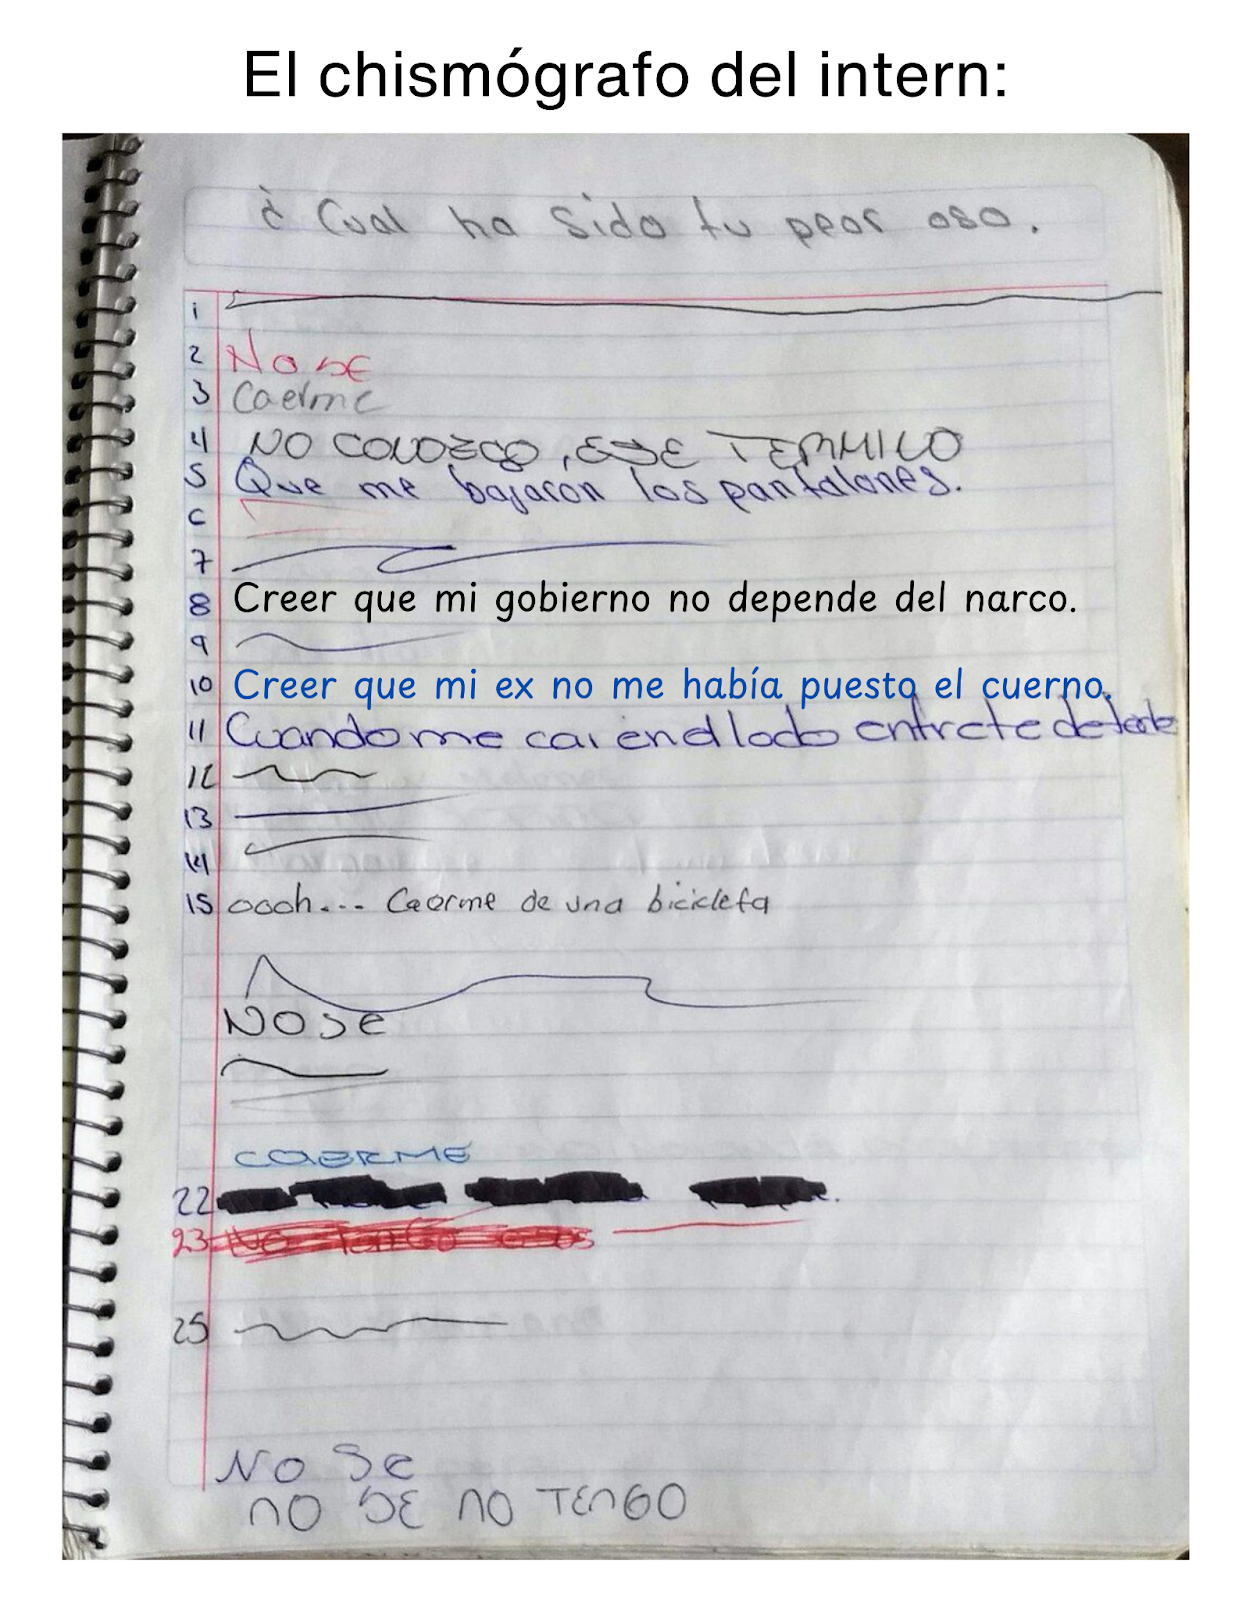 El chismógrafo del intern:
¿ Cual ha sido tu peor oso.
1
2 No SE
3 Caerme
4 NO CONOZCO, ESE TERMINO
5 Que me bajaron los pantalones.
6
7
8 Creer que mi gobierno no depende del narco.
9
10 Creer que mi ex no me había puesto el cuerno.
11 Cuando me cai en el lodo
12
13
14
15 oooh... Caerme de una bicicleta
NO se
CAERME
22
23 No Tengo osos
25
No Se
NO SE NO TENGO